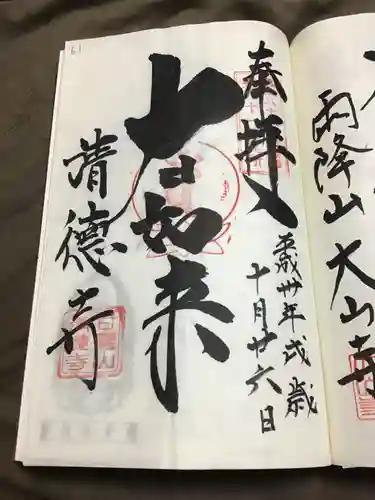 雨降山 大山寺
奉拝
平成卅年戌歳
十月廿六日
大日如来
清徳寺